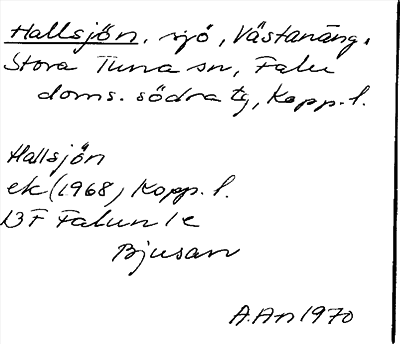 Hallsjön, sjö, Västanäng,
Stora Tuna sn, Falu
doms. södra tg, Kopp. l.
Hallsjön
ek (1968) Kopp. l.
13F Falun 1c
Bjusan
A.An 1970